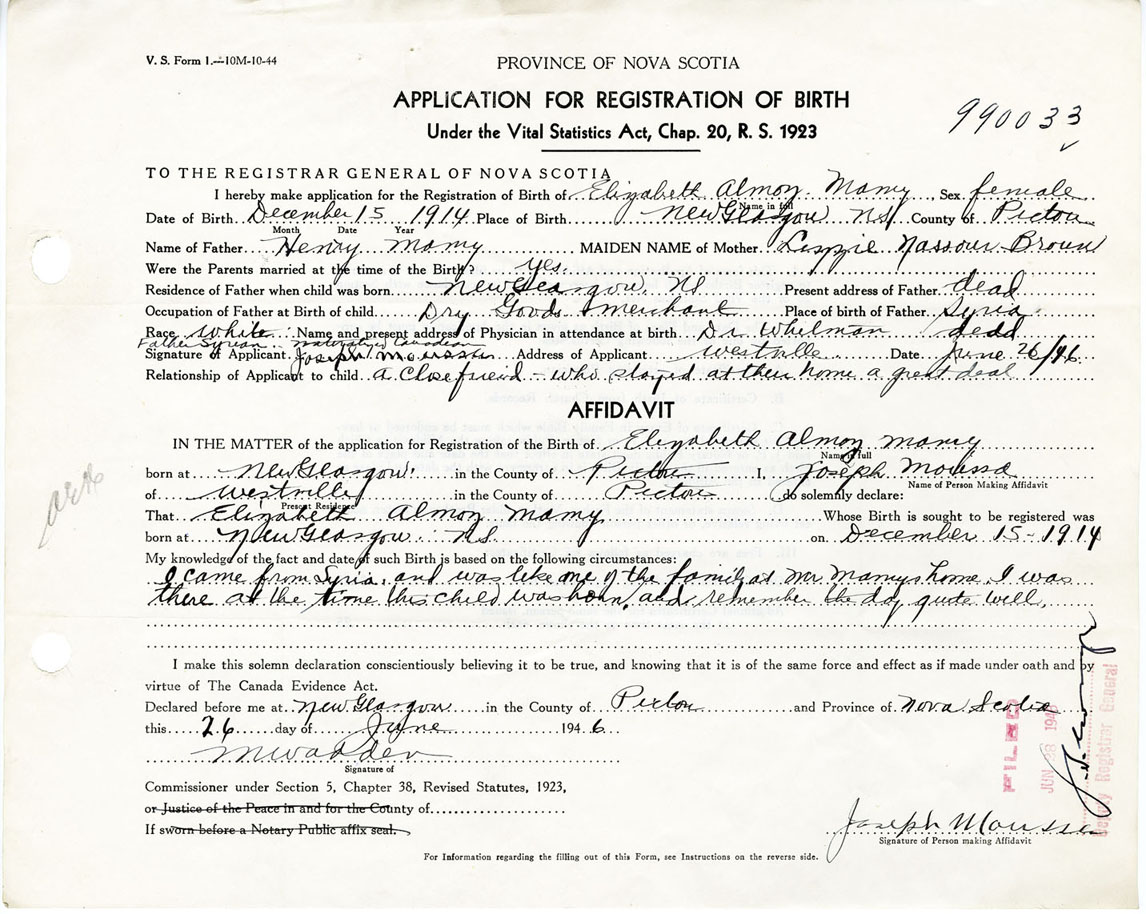 V. S. Form 1.—10M-10-44
PROVINCE OF NOVA SCOTIA
APPLICATION FOR REGISTRATION OF BIRTH
Under the Vital Statistics Act, Chap. 20, R. S. 1923
990033
TO THE REGISTRAR GENERAL OF NOVA SCOTIA
I hereby make application for the Registration of Birth of Elizabeth Almoy Mamy, Sex female
Name in full
Date of Birth December 15 1914 Place of Birth New Glasgow NS County of Pictou
Month Date Year
Name of Father Henry Mamy MAIDEN NAME of Mother Lizzie Nassour Brown
Were the Parents married at the time of the Birth? yes.
Residence of Father when child was born New Glasgow, NS Present address of Father dead
Occupation of Father at Birth of child Dry Goods Merchant Place of birth of Father Syria
Race White Name and present address of Physician in attendance at birth Dr Whelman dead
Father Syrian naturalized Canadian
Signature of Applicant Joseph Moussa Address of Applicant Westville Date June 26/46
Relationship of Applicant to child a close freind - who stayed at their home a great deal
AFFIDAVIT
IN THE MATTER of the application for Registration of the Birth of Elizabeth Almoy Mamy
Name in full
born at New Glasgow in the County of Pictou I, Joseph Moussa
Name of Person Making Affidavit
of Westville in the County of Pictou do solemnly declare:
Present Residence
That Elizabeth Almoy Mamy Whose Birth is sought to be registered was
born at New Glasgow NS on December 15-1914
My knowledge of the fact and date of such Birth is based on the following circumstances:
I came from Syria, and was like one of the family at Mr Mamys home I was
there at the time this child was born, and remember the day quite well.
I make this solemn declaration conscientiously believing it to be true, and knowing that it is of the same force and effect as if made under oath and by
virtue of The Canada Evidence Act.
Declared before me at New Glasgow in the County of Pictou and Province of Nova Scotia
this 26 day of June 1946
Signature of
Commissioner under Section 5, Chapter 38, Revised Statutes, 1923,
or Justice of the Peace in and for the County of
If sworn before a Notary Public affix seal.
FILED
JUN 28 1946
Deputy Registrar General
Joseph Moussa
Signature of Person making Affidavit
For Information regarding the filling out of this Form, see Instructions on the reverse side.